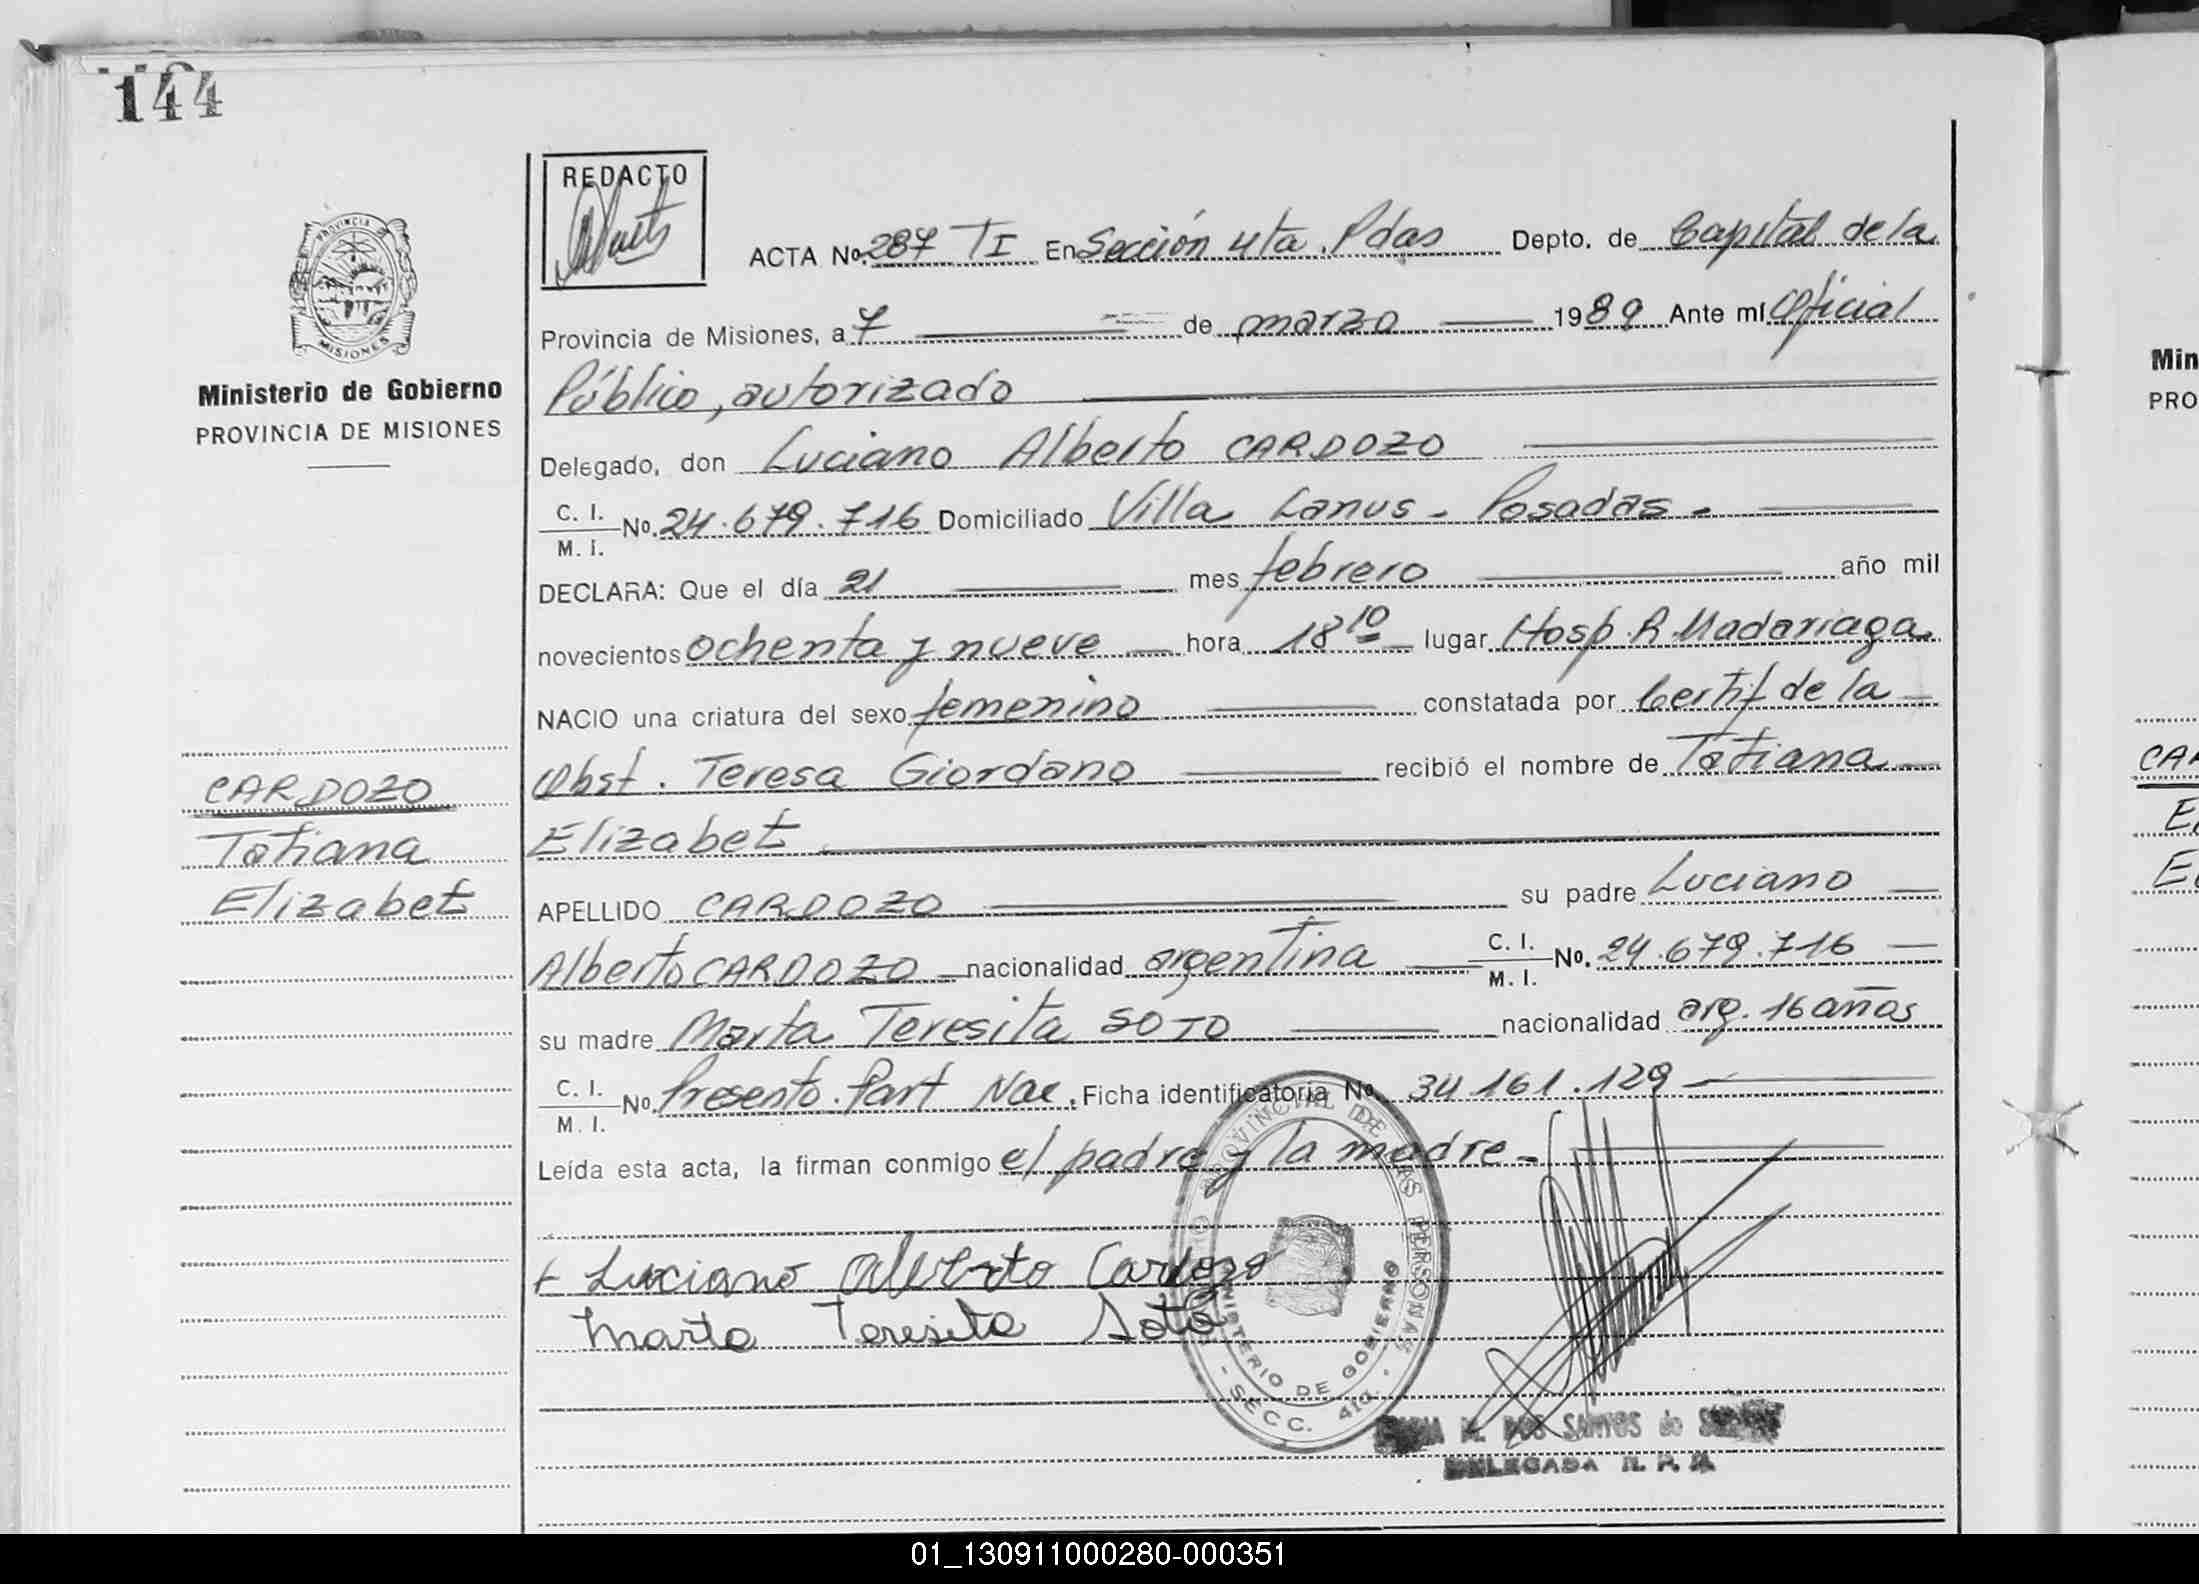 144
REDACTO
PROVINCIA DE MISIONES
Ministerio de Gobierno
PROVINCIA DE MISIONES
ACTA No. 287 TI En Sección 4ta. Pdas Depto. de Capital de la
Provincia de Misiones, a 7 de marzo 1989 Ante mí Oficial
Público, autorizado
Delegado, don Luciano Alberto CARDOZO
C. I. / M. I. No. 24.679.716 Domiciliado Villa Lanus - Posadas.-
DECLARA: Que el día 21 mes febrero año mil
novecientos ochenta y nueve hora 18 10 lugar Hosp. R. Madariaga
NACIO una criatura del sexo femenino constatada por Certif de la
Obst. Teresa Giordano recibió el nombre de Tatiana
Elizabet
APELLIDO CARDOZO su padre Luciano
Alberto CARDOZO nacionalidad argentina C. I. / M. I. No. 24.679.716
su madre Marta Teresita SOTO nacionalidad arg. 16 años
C. I. / M. I. No. Presento. Part Nac. Ficha identificatoria No. 34 161.129
Leída esta acta, la firman conmigo el padre y la madre-
Luciano Alberto Cardozo
Marta Teresita Soto
CARDOZO
Tatiana
Elizabet
PROVINCIAL DE LAS PERSONAS
MINISTERIO DE GOBIERNO
- SECC. 4ta. -
M. DOS SANTOS de
DELEGADA R. P. P.
Min
PRO
CA
E
E
01_130911000280-000351